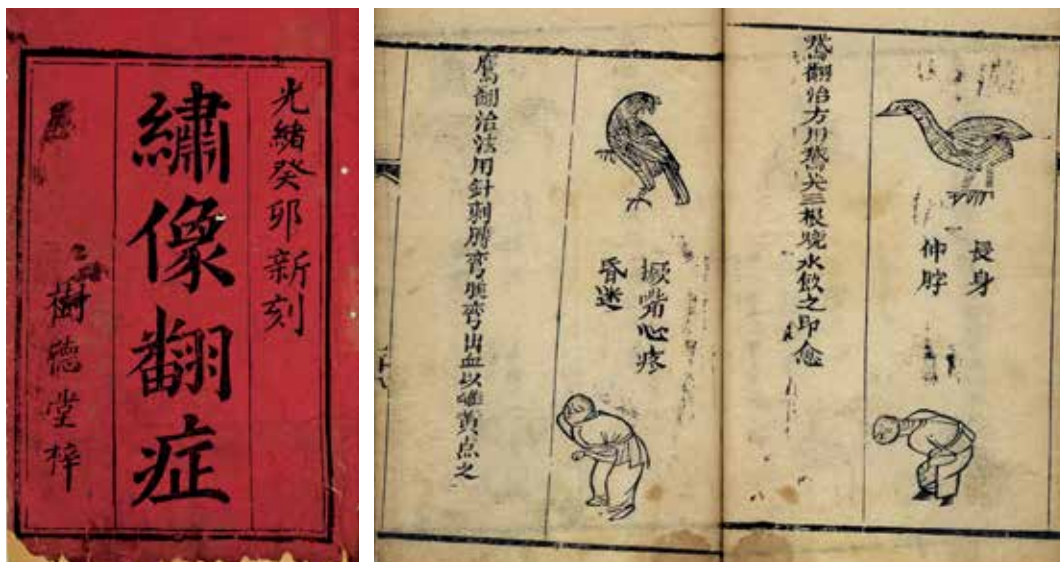 光緒癸卯新刻
繡像翻症
樹德堂梓
長身
伸脖
鵞翻治方用鵞尖三根燒水飲之即愈
撅嘴心疼
昏迷
鷹翻治法用針刺膀弯腿弯出血以雄黄点之